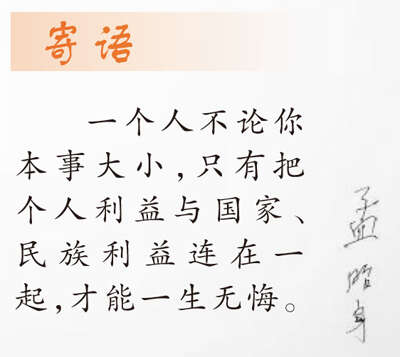 寄语
一个人不论你
本事大小，只有把
个人利益与国家、
民族利益连在一
起，才能一生无悔。
孟昭身